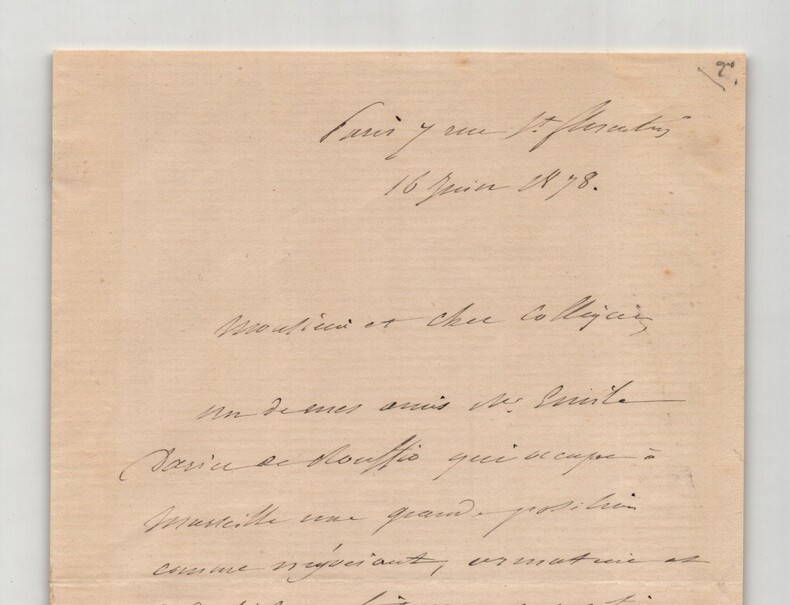 Paris 7 rue St. Florentin
16 Juin 1878.
Monsieur et cher Collègue,
un de mes amis Mr. Emile
de Rouffio qui occupe à
Marseille une grande position
comme négociant, armateur et